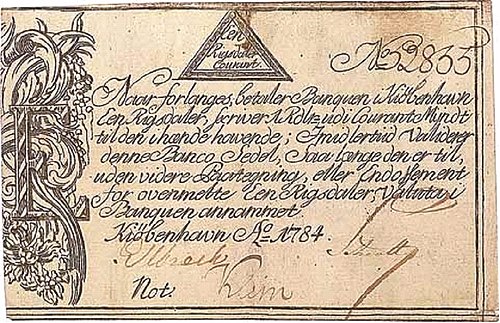 Een
Rigsdaler
Courant.
No 32855
Naar forlanges, betaler Banquen i Kiöbenhavn
Een Rigsdaler, skriver 1 Rdlr. udi Courant Myndt
til den i hænde havende; Imidlertid Validerer
denne Banco Sedel, Saa lange den er til,
uden videre Paategning, eller Endossement
for ovenmelte Een Rigsdaler, Valuta i
Banquen annammet.
Kiöbenhavn Ao. 1784.
Not.